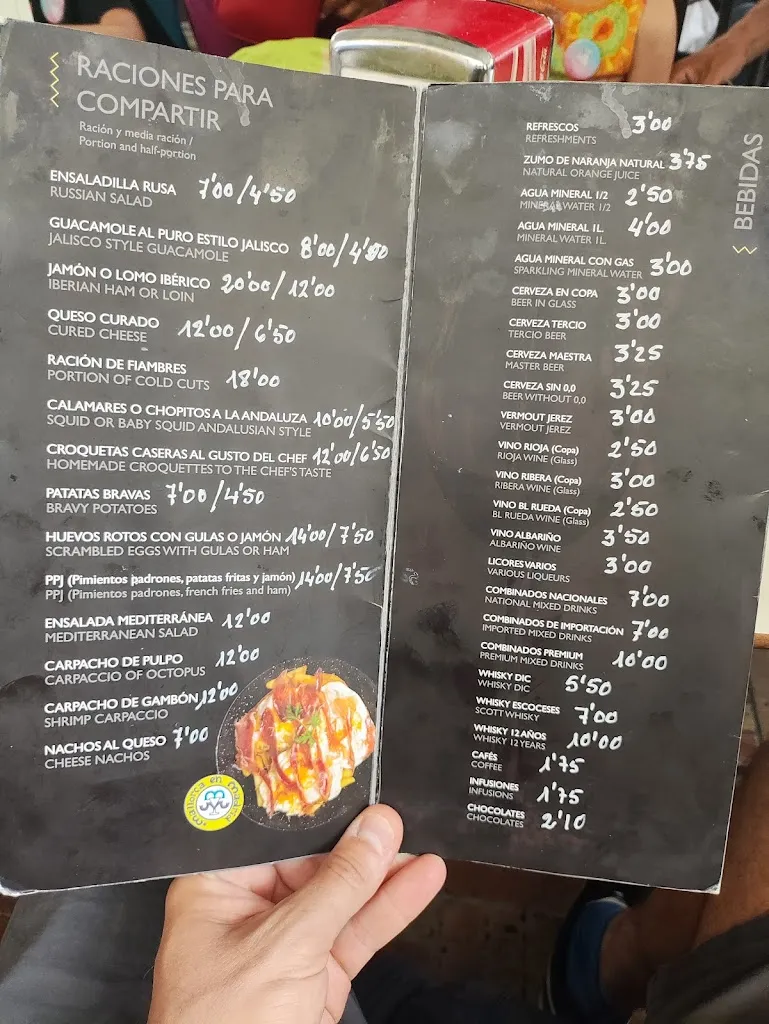 RACIONES PARA
COMPARTIR
Ración y media ración /
Portion and half-portion
ENSALADILLA RUSA 7'00/4'50
RUSSIAN SALAD
GUACAMOLE AL PURO ESTILO JALISCO 8'00/4'50
JALISCO STYLE GUACAMOLE
JAMÓN O LOMO IBÉRICO 20'00/12'00
IBERIAN HAM OR LOIN
QUESO CURADO 12'00/6'50
CURED CHEESE
RACIÓN DE FIAMBRES 18'00
PORTION OF COLD CUTS
CALAMARES O CHOPITOS A LA ANDALUZA 10'00/5'50
SQUID OR BABY SQUID ANDALUSIAN STYLE
CROQUETAS CASERAS AL GUSTO DEL CHEF 12'00/6'50
HOMEMADE CROQUETTES TO THE CHEF'S TASTE
PATATAS BRAVAS 7'00/4'50
BRAVY POTATOES
HUEVOS ROTOS CON GULAS O JAMÓN 14'00/7'50
SCRAMBLED EGGS WITH GULAS OR HAM
PPJ (Pimientos padrones, patatas fritas y jamón) 14'00/7'50
PPJ (Pimientos padrones, french fries and ham)
ENSALADA MEDITERRÁNEA 12'00
MEDITERRANEAN SALAD
CARPACHO DE PULPO 12'00
CARPACCIO OF OCTOPUS
CARPACHO DE GAMBÓN 12'00
SHRIMP CARPACCIO
NACHOS AL QUESO 7'00
CHEESE NACHOS
BEBIDAS
REFRESCOS 3'00
REFRESHMENTS
ZUMO DE NARANJA NATURAL 3'75
NATURAL ORANGE JUICE
AGUA MINERAL 1/2 2'50
MINERAL WATER 1/2
AGUA MINERAL 1L. 4'00
MINERAL WATER 1L.
AGUA MINERAL CON GAS 3'00
SPARKLING MINERAL WATER
CERVEZA EN COPA 3'00
BEER IN GLASS
CERVEZA TERCIO 3'00
TERCIO BEER
CERVEZA MAESTRA 3'25
MASTER BEER
CERVEZA SIN 0,0 3'25
BEER WITHOUT 0,0
VERMOUT JEREZ 3'00
VERMOUT JEREZ
VINO RIOJA (Copa) 2'50
RIOJA WINE (Glass)
VINO RIBERA (Copa) 3'00
RIBERA WINE (Glass)
VINO BL RUEDA (Copa) 2'50
BL RUEDA WINE (Glass)
VINO ALBARIÑO 3'50
ALBARIÑO WINE
LICORES VARIOS 3'00
VARIOUS LIQUEURS
COMBINADOS NACIONALES 7'00
NATIONAL MIXED DRINKS
COMBINADOS DE IMPORTACIÓN 7'00
IMPORTED MIXED DRINKS
COMBINADOS PREMIUM 10'00
PREMIUM MIXED DRINKS
WHISKY DIC 5'50
WHISKY DIC
WHISKY ESCOCESES 7'00
SCOTT WHISKY
WHISKY 12 AÑOS 10'00
WHISKY 12 YEARS
CAFÉS 1'75
COFFEE
INFUSIONES 1'75
INFUSIONS
CHOCOLATES 2'10
CHOCOLATES